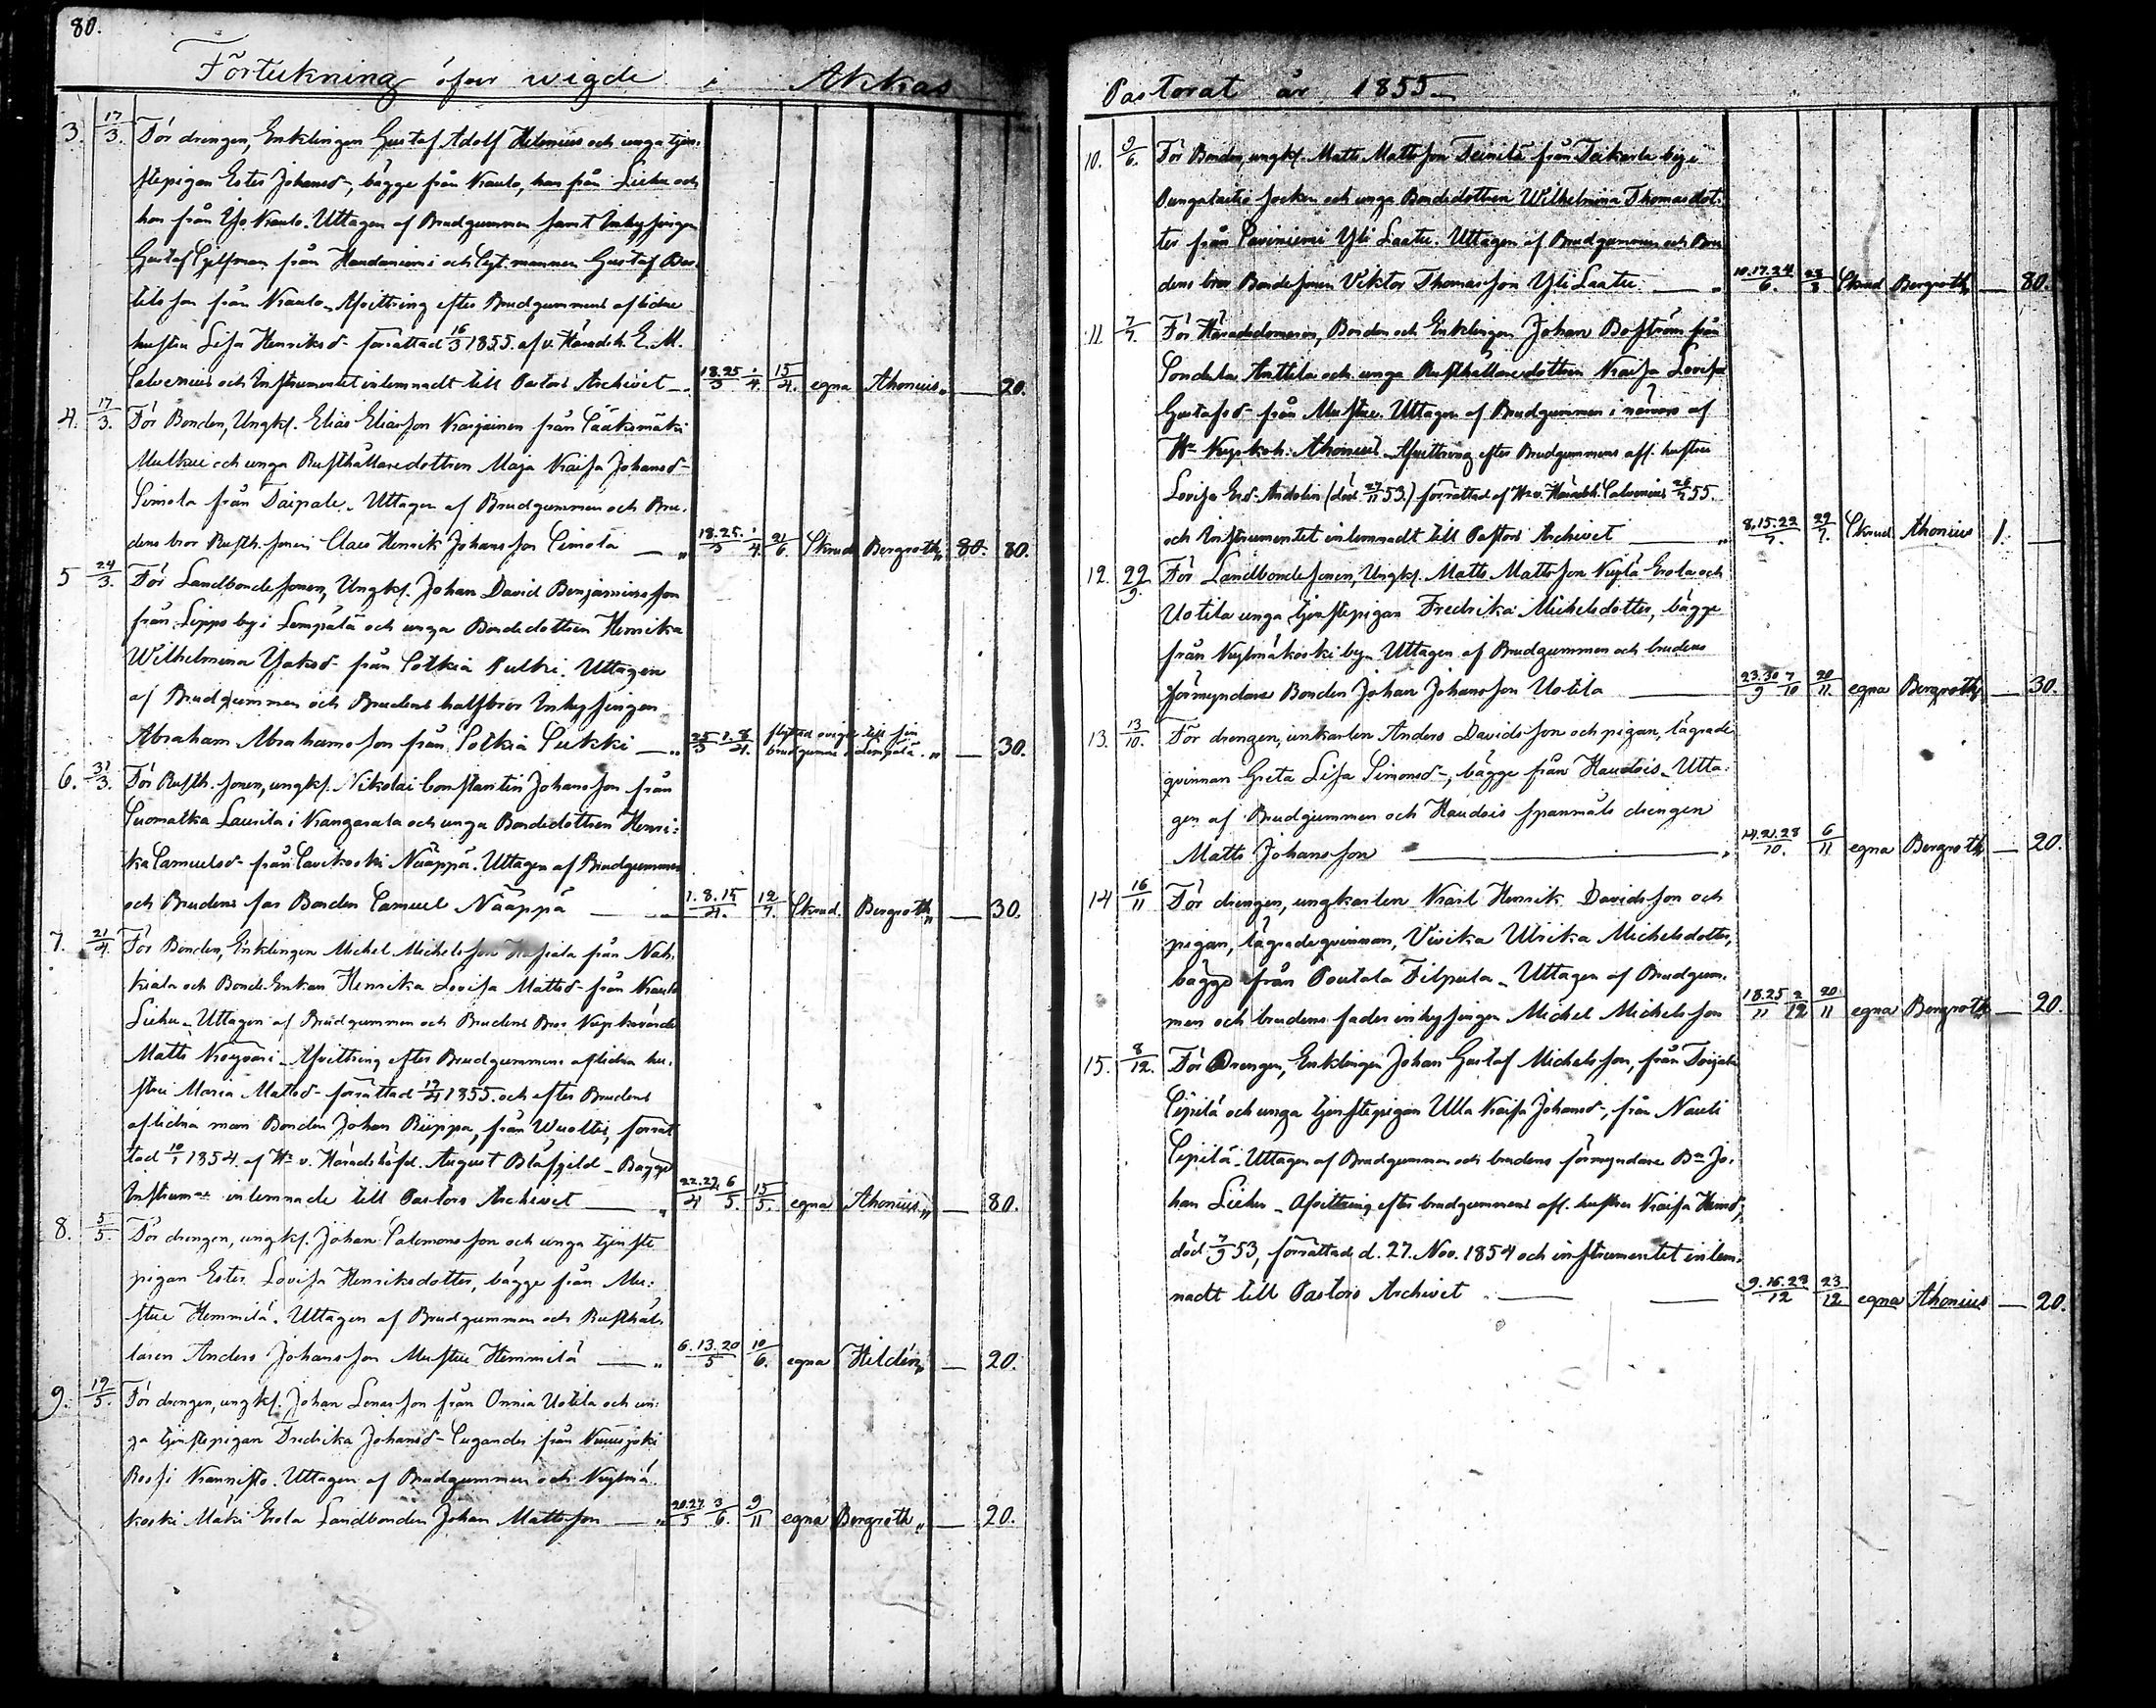 80.
Förteckning öfver wigde i Akkas
3. 17/3. För drengen, Enklingen Gustaf Adolf Helenius och unga tjen-
stepigan Ester Johansd-, bägge från Kaulo, han från Lieku och
hon från Yso Kaulo. Uttagen af Brudgummen samt Inhysingen
Gustaf från Haudaniemi och Gustaf
son från Kaulo. Afvittring efter Brudgummens aflidne
hustru Lisa Henriksd- förrättad 16/3 1855. af v. Häradsh. E. M.
Calvenius och Instrumentet inlemnadt till Pastors Archivet 18.25/3 1/4. 15/4. egna Ahonius „ — 20.
4. 17/3. För Bonden, Ungkl. Elias Eliasson Karjainen från Sääksmäki
och unga Rusthållaredottren Maja Kaisa Johansd-
Simola från Taipale. Uttagen af Brudgummen och Bru-
dens bror Rusth. sonen Claes Henrik Johansson Simola — „ 18.25./3 1/4. 21/6. Skrud Bergroth „ 80. 80.
5 24/3. För Landbondesonen, Ungkl. Johan David Benjaminsson
från Lippo by i Lempälä och unga Bondedottren Henrika
Wilhelmina Jaksd- från Sotkia Pulki. Uttagen
af Brudgummen och Brudens halfbror Inhysingen
Abraham Abrahamsson från Sotkia — „ 25/3 1.8/4. flyttad ovigd till sin brudgumme i Lempälä. „ — 30.
6. 31/3. För Rusth. sonen, ungkl. Nikolai Constantin Johansson från
Suomatka Laurila i Kangasala och unga Bondedottren Henri-
ka Samuelsd- från Savikoski Nääppä. Uttagen af Brudgummen
och Brudens far Bonden Samuel Nääppä — 1.8.15/4. 12/7. Skrud. Bergroth „ — 30.
7. 21/4. För Bonden, Enklingen Michel Michelsson från Nah-
kiala och Bonde Enkan Henrika Lovisa Mattsd- från Kaulo
Lieku. Uttagen af Brudgummen och Brudens Bror
Matts. Afvittring efter Brudgummens aflidna hu-
stru Maria Mattsd- förrättad 17/4 1855. och efter Brudens
aflidna man Bonden Johan från Wuoltee, förrät-
tad 10/1 1854. af Hr v. Häradshöfd. August Blåfjeld. Bägge
Instrumt inlemnade till Pastors Archivet — „ 22.29/4 6/5. 15/5. egna Ahonius „ — 80.
8. 5/5 För drengen, ungkl. Johan Salomonsson och unga tjenste
pigan Ester Lovisa Henriksdotter, bägge från Mu-
stue Hemmilä. Uttagen af Brudgummen och Rusthål-
laren Anders Johansson Mustue Hemmilä — „ 6.13.20/5 10/6. egna Heldén „ — 20.
9. 19/5. För drengen, ungkl. Johan Lenasson från Onnia Uotila och un-
ga tjenstepigan Fredrika Johansd- Lugander från
Rossi Kannisto. Uttagen af Brudgummen och Kylmä-
koski Mäki Erola Landbonden Johan Mattsson — „ 20.27/5 3/6. 9/11 egna Bergroth „ — 20.
Pastorat år 1855.
10. 9/6. För Bonden, ungkl. Matts Mattsson från by i
Pungalaitio socken och unga Bondedottren Wilhelmina Thomasdot-
ter från Saviniemi Yli Laatu. Uttagen af Brudgummen och Bru-
dens bror Bondesonen Viktor Thomasson Yli Laatu — „ 10.17.24/6. 28/8 Skrud Bergroth „ — 80.
11 7/7. För Häradsdomaren, Bonden och Enklingen Johan Boström från
Sondala Anttila och unga Rusthållaredottren Kaisa Lovisa
Gustafsd- från Mustue. Uttagen af Brudgummen i närvaro af
Hr Ahonius. Afvittring efter Brudgummens afl. hustru
Lovisa Ersd- Andelin (död 27/11 53.) förrättad af Hr v. Häradsh. Calvenius 26/7 55.
och Instrumentet inlemnadt till Pastors Archivet — „ 8.15.22/7. 29/7. Skrud Ahonius 1. —
12. 22/9. För Landbondesonen, Ungkl. Matts Mattsson Erola och
Uotila unga tjenstepigan Fredrika Michelsdotter, bägge
från Kylmäkoski by. Uttagen af Brudgummen och brudens
förmyndare Bonden Johan Johansson Uotila — 23.30/9 7/10 20/11 egna Bergroth „ — 30.
13. 13/10. För drengen, unkarlen Anders Davidsson och pigan, lägrade
qvinnan Greta Lisa Simonsd-, bägge från Haudois. Utta-
gen af Brudgummen och Haudois spanmåls drengen
Matts Johansson — „ 14.21.28/10. 6/11 egna Bergroth — 20.
14 16/11 För drengen, ungkarlen Karl Henrik Davidsson och
pigan, lägrade qvinnan, Vivika Ulrika Michelsdotter,
bägge från Pentala Filpula. Uttagen af Brudgum-
men och brudens fader inhysingen Michel Michelsson 18.25/11 2/12 20/11 egna Bergroth „ — 20.
15. 8/12. För Drengen, Enklingen Johan Gustaf Michelsson, från Toijala
Sipilä och unga tjenstepigan Ulla Kaisa Johansd-, från Nauli
Sipilä. Uttagen af Brudgummen och brudens förmyndare Bn Jo-
han Lieku. Afvittring efter brudgummens afl. hustru Kaisa Henrd-,
död 7/9 53, förrättad d. 27. Nov. 1854 och instrumentet inlem-
nadt till Pastors Archivet — 9.16.23/12 23/12 egna Ahonius — 20.